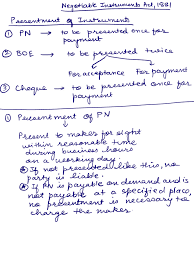 Negotiable Instruments Act, 1881
Presentment of Instrument
① PN → to be presented once for
payment
② BOE → to be presented twice
For acceptance For payment
③ Cheque → to be presented once for
payment
① Presentment of PN
Present to maker for sight
within reasonable time
during business hours
on a working day.
If not presented like this, no
party is liable.
If PN is payable on demand and is
not payable at a specified place,
no presentment is necessary to
charge the maker.